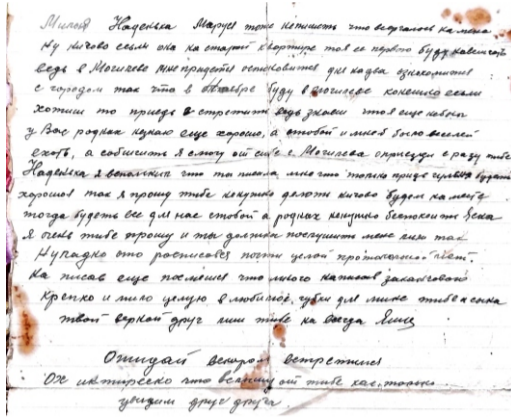 Милая Наденька Маруся тоже непишеть что всердилась на меня
Ну ничово если она на старой квартире тоя ее первого буду навещать
ведь в Могилеве мне придется остоновится дня надва ознакомится
с городом так что в Октебре буду в могилеве конешно если
хотиш то приедь встретить ведь знаеш чтоя еще небыл
у Вас родных незнаю еще хорошо, а стобой и мнеб было веселей
ехоть, а сообщить я смогу от сибе с Могилева оприезде сразу тибе
Наденька я вспомнил что ты писала мне что только приедь будить
хорошое так я прошу тибе ненужно делоть ничово будем на месте
тогда будеть все для нас стобой а родных ненужно беспокоить
я очень тибе прошу и ты должен послушить мене
Ну ладно это росписовся почти целой
На писав еще посмеися что много написов заканчоваю
Крепко и мило целую в любимое губки для мине тибе и сына
твой верной друг тибе на всегда Яша
Ожидай вскором встретимся
Ох интиресно что от тибе как только
увидим друг друга